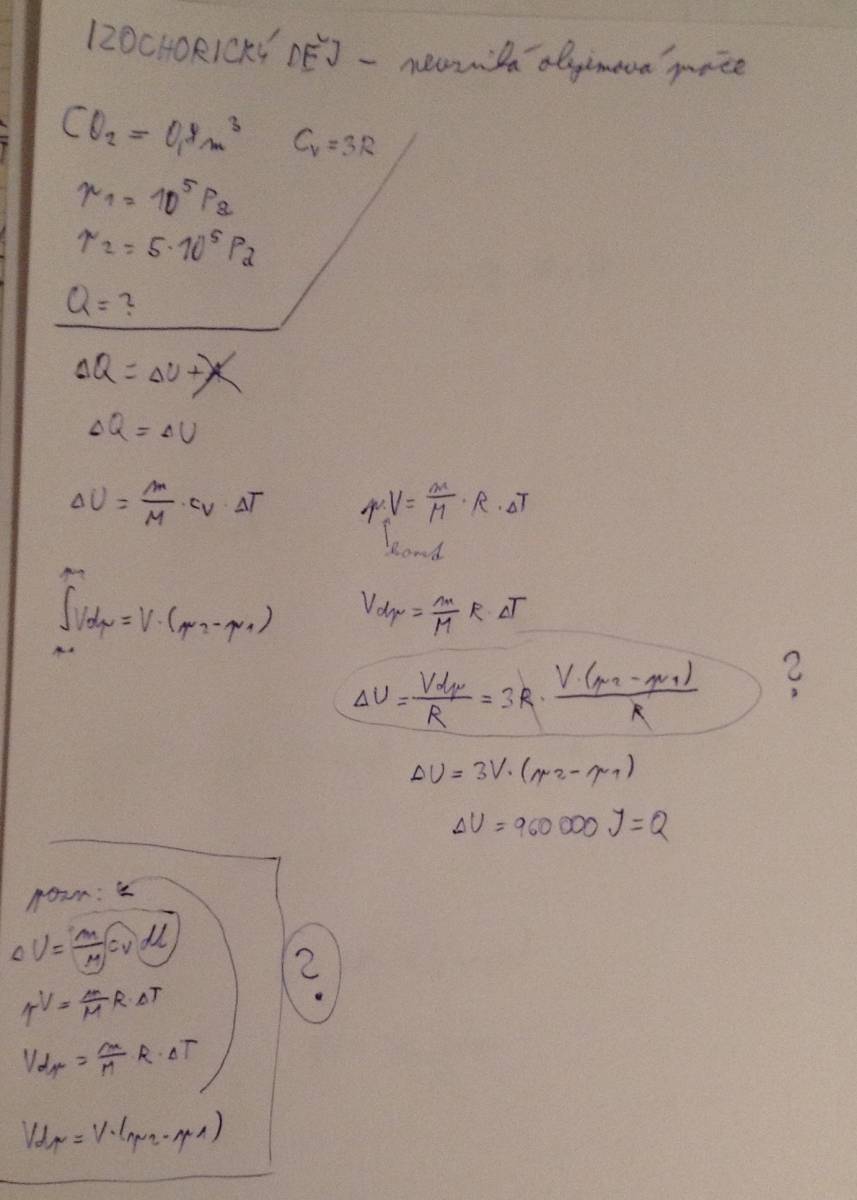 IZOCHORICKÝ DĚJ – nevzniká objemová práce
CO₂ = 0,8 m³ Cᵥ = 3R
p₁ = 10⁵ Pa
p₂ = 5·10⁵ Pa
Q = ?
ΔQ = ΔU +
ΔQ = ΔU
ΔU = m/M · cᵥ · ΔT
p·V = m/M · R · ΔT
konst
∫Vdp = V·(p₂ - p₁)
Vdp = m/M R · ΔT
ΔU = Vdp/R = 3R · V·(p₂ - p₁)/R ?
ΔU = 3V·(p₂ - p₁)
ΔU = 960 000 J = Q
pozn:
ΔU = m/M cᵥ
?
pV = m/M R·ΔT
Vdp = m/M · R · ΔT
Vdp = V·(p₂ - p₁)